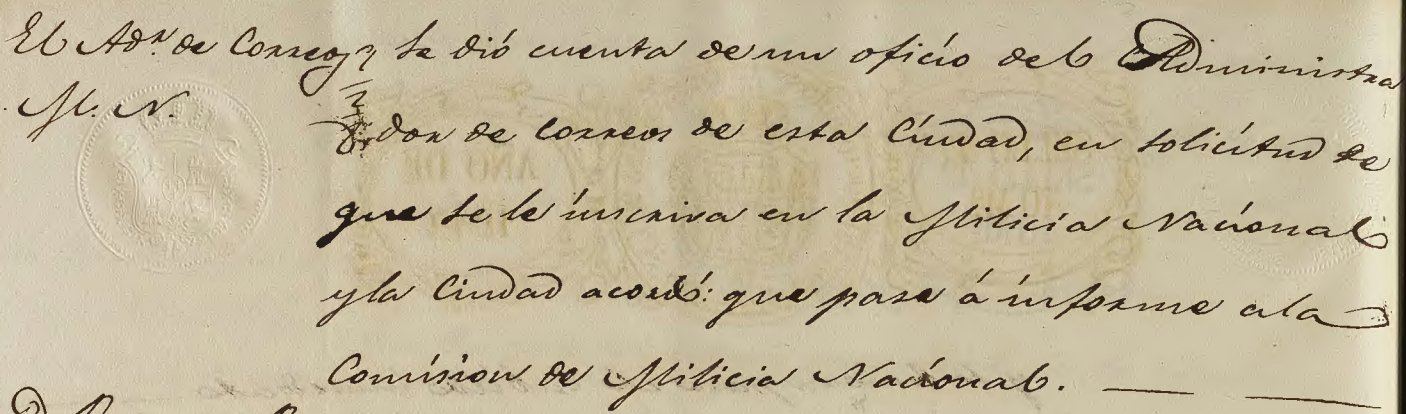 El Adr. de Correos
M. N.
Se dió cuenta de un oficio del Administra
dor de Correos de esta Ciudad, en solicitud de
que se le inscriva en la Milicia Nacional
y la Ciudad acordó: que pase á informe a la
Comision de Milicia Nacional.